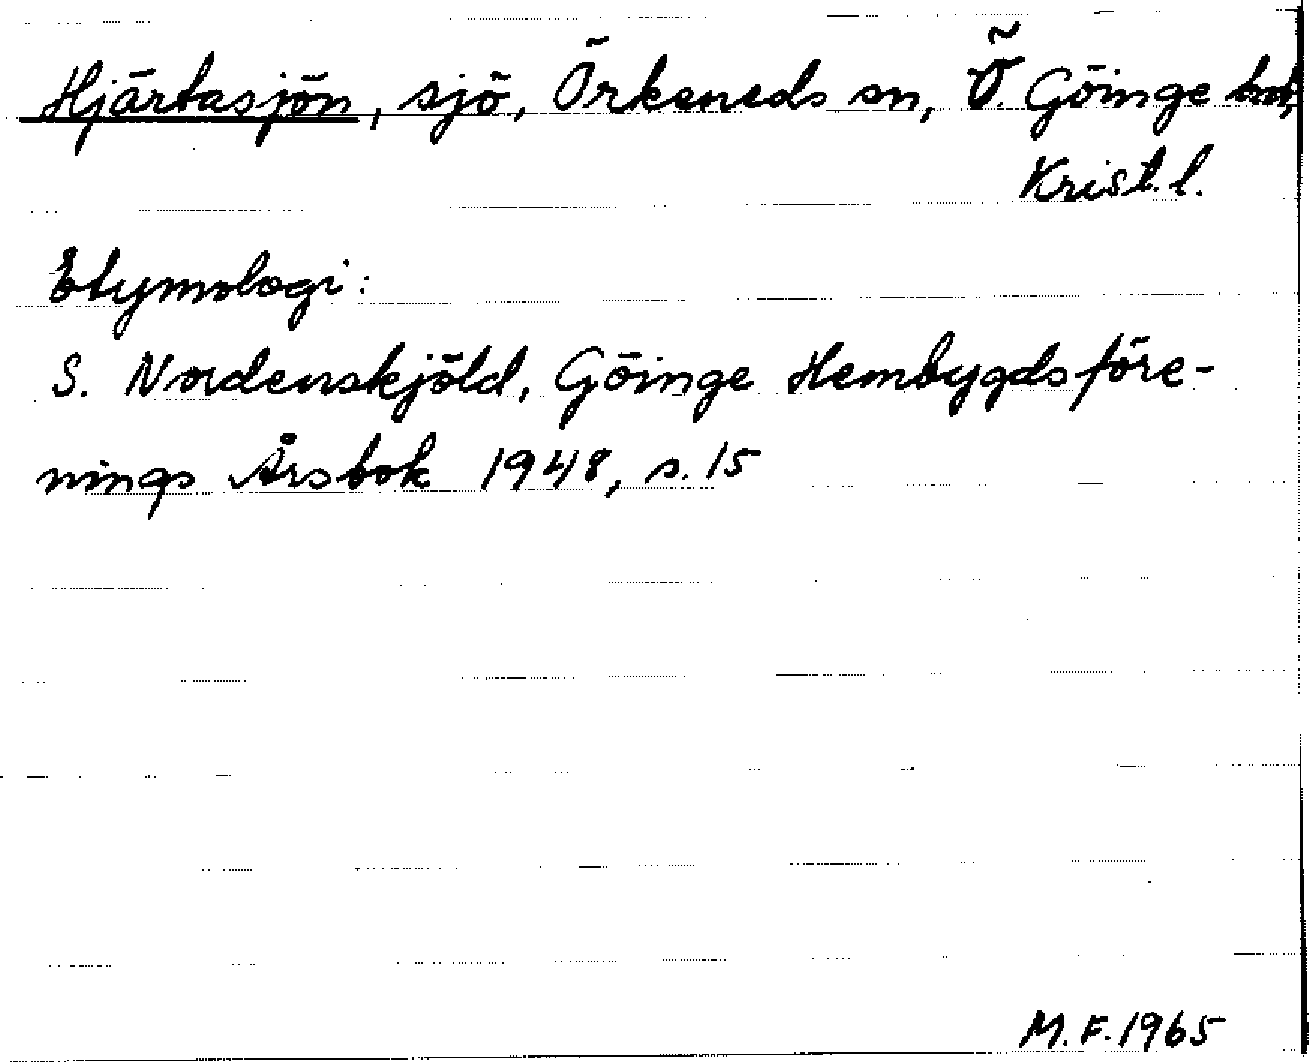 Hjärtasjön, sjö, Örkeneds sn, Ö. Göinge hd,
Krist. l.
Etymologi:
S. Nordenskjöld, Göinge Hembygdsföre-
nings Årsbok 1948, s. 15
M.F. 1965